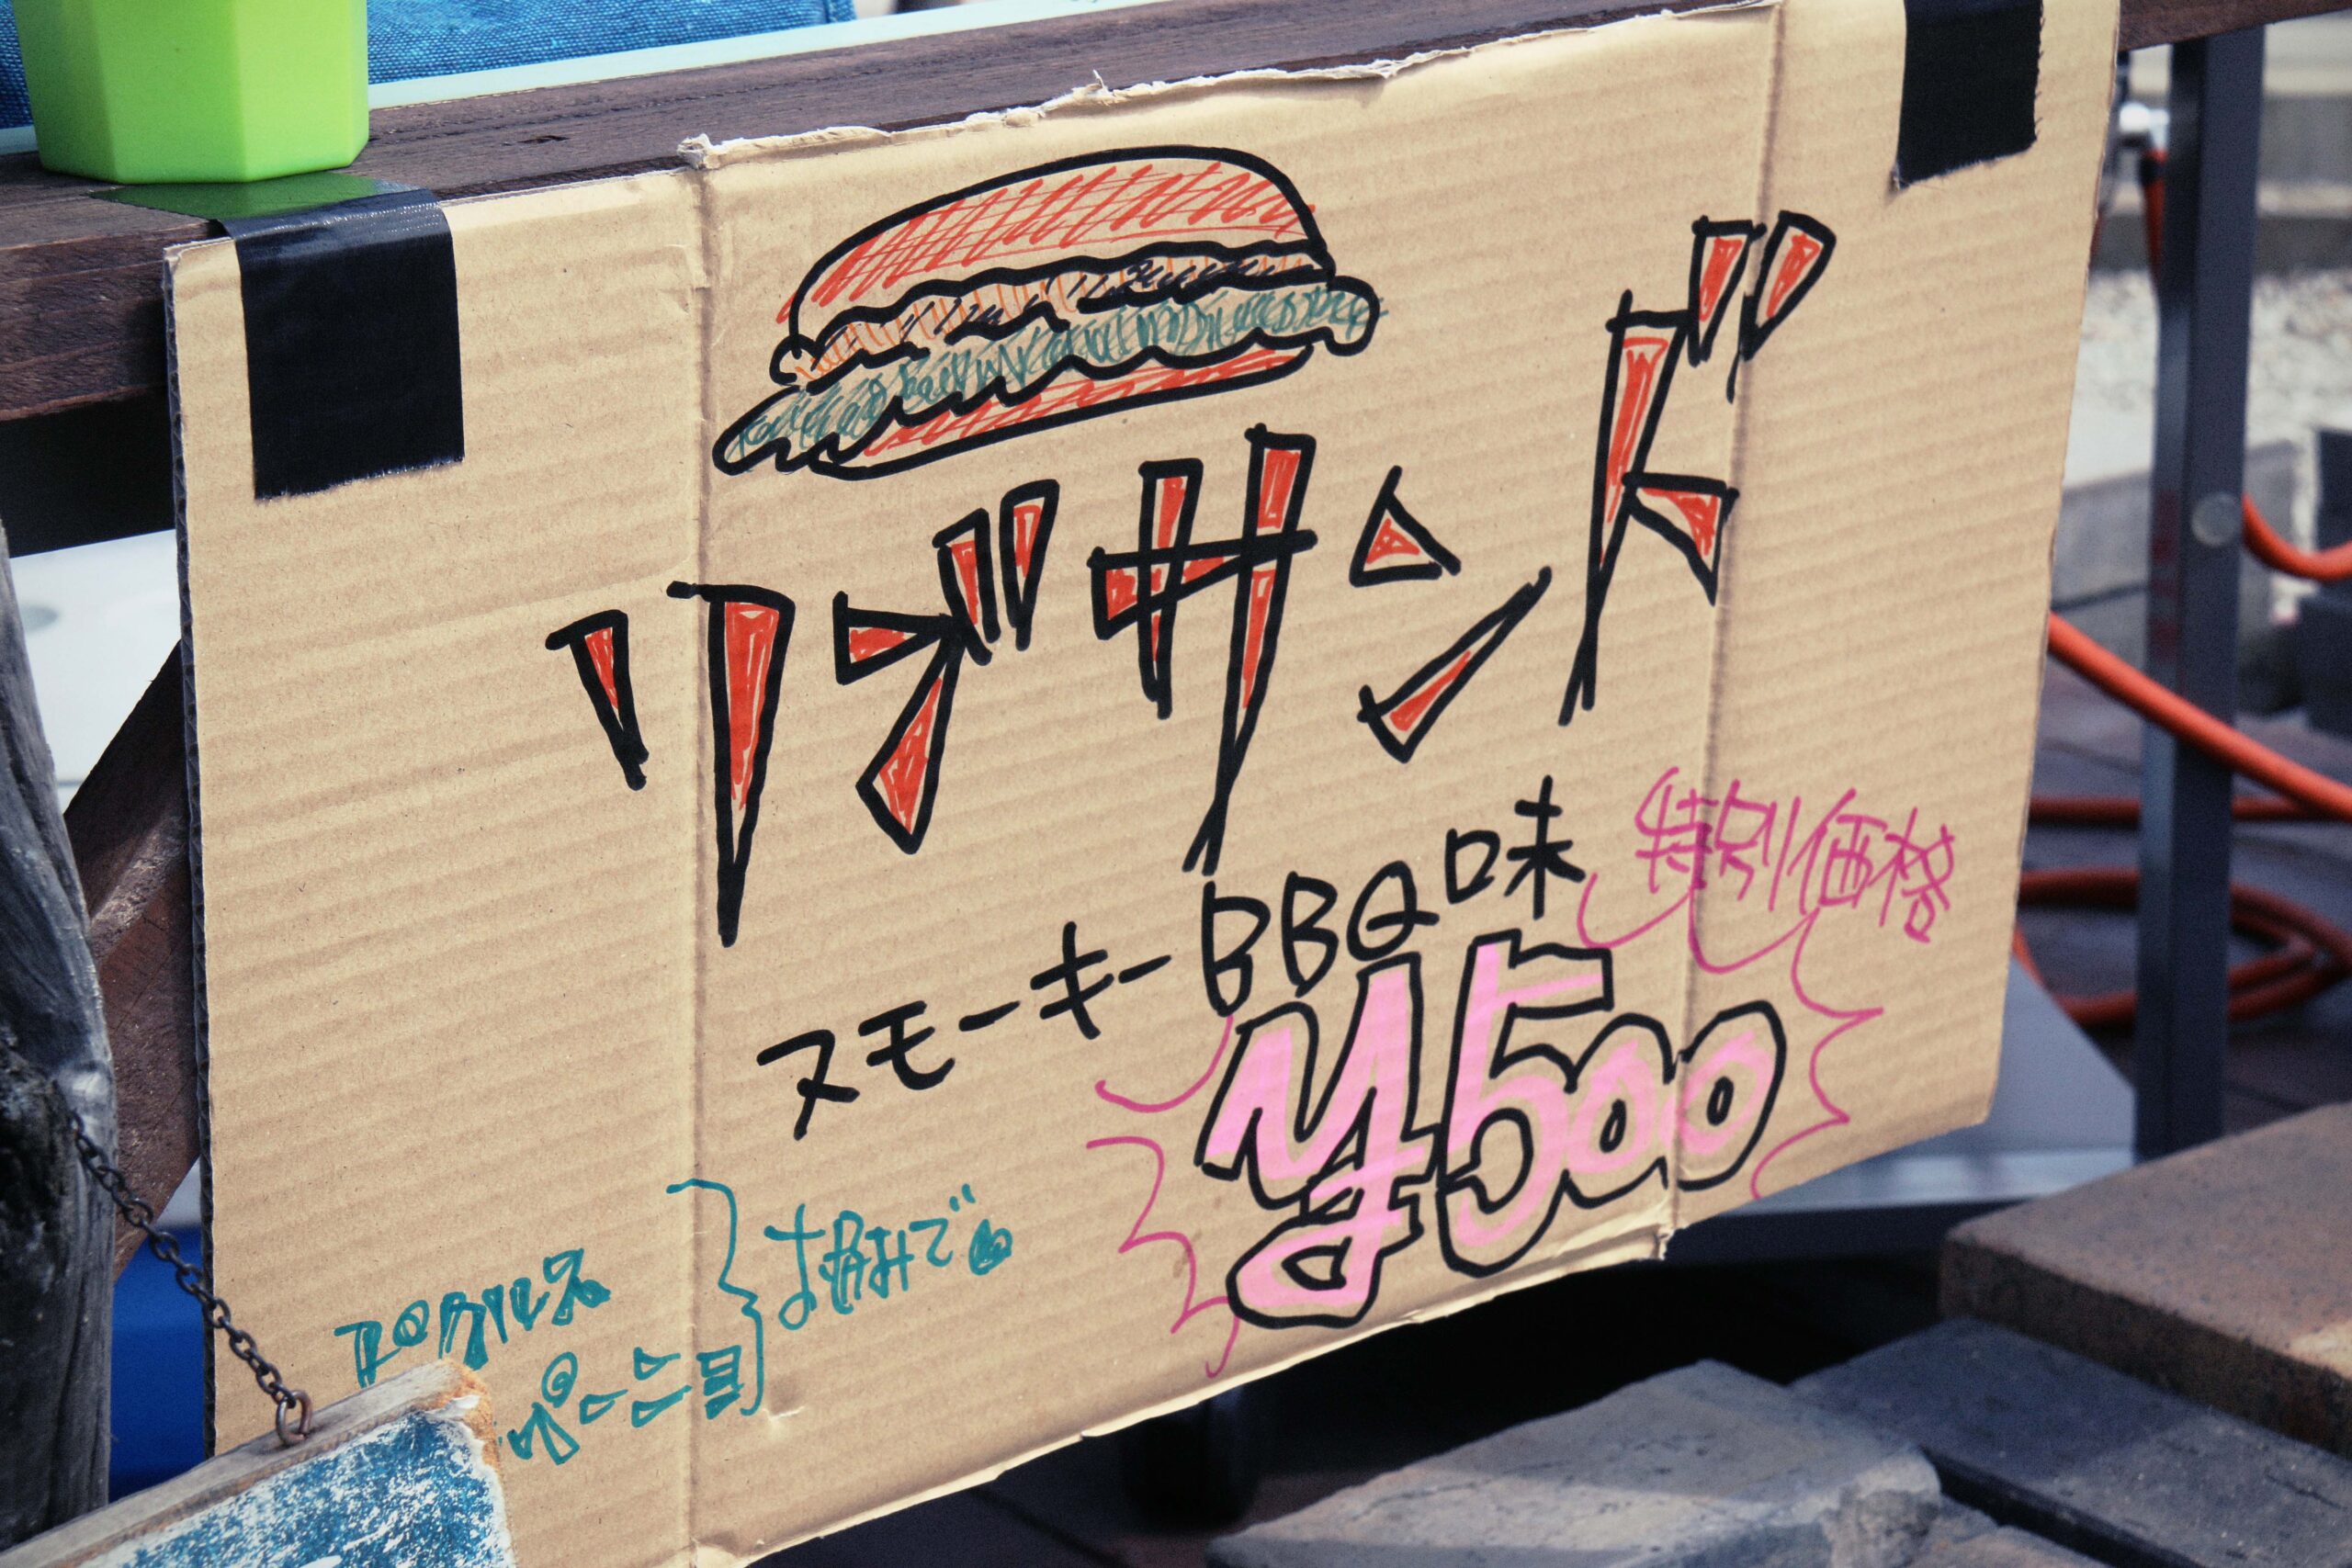 リブサンド
スモーキーBBQ味
特別価格
¥500
ピクルス
お好みで